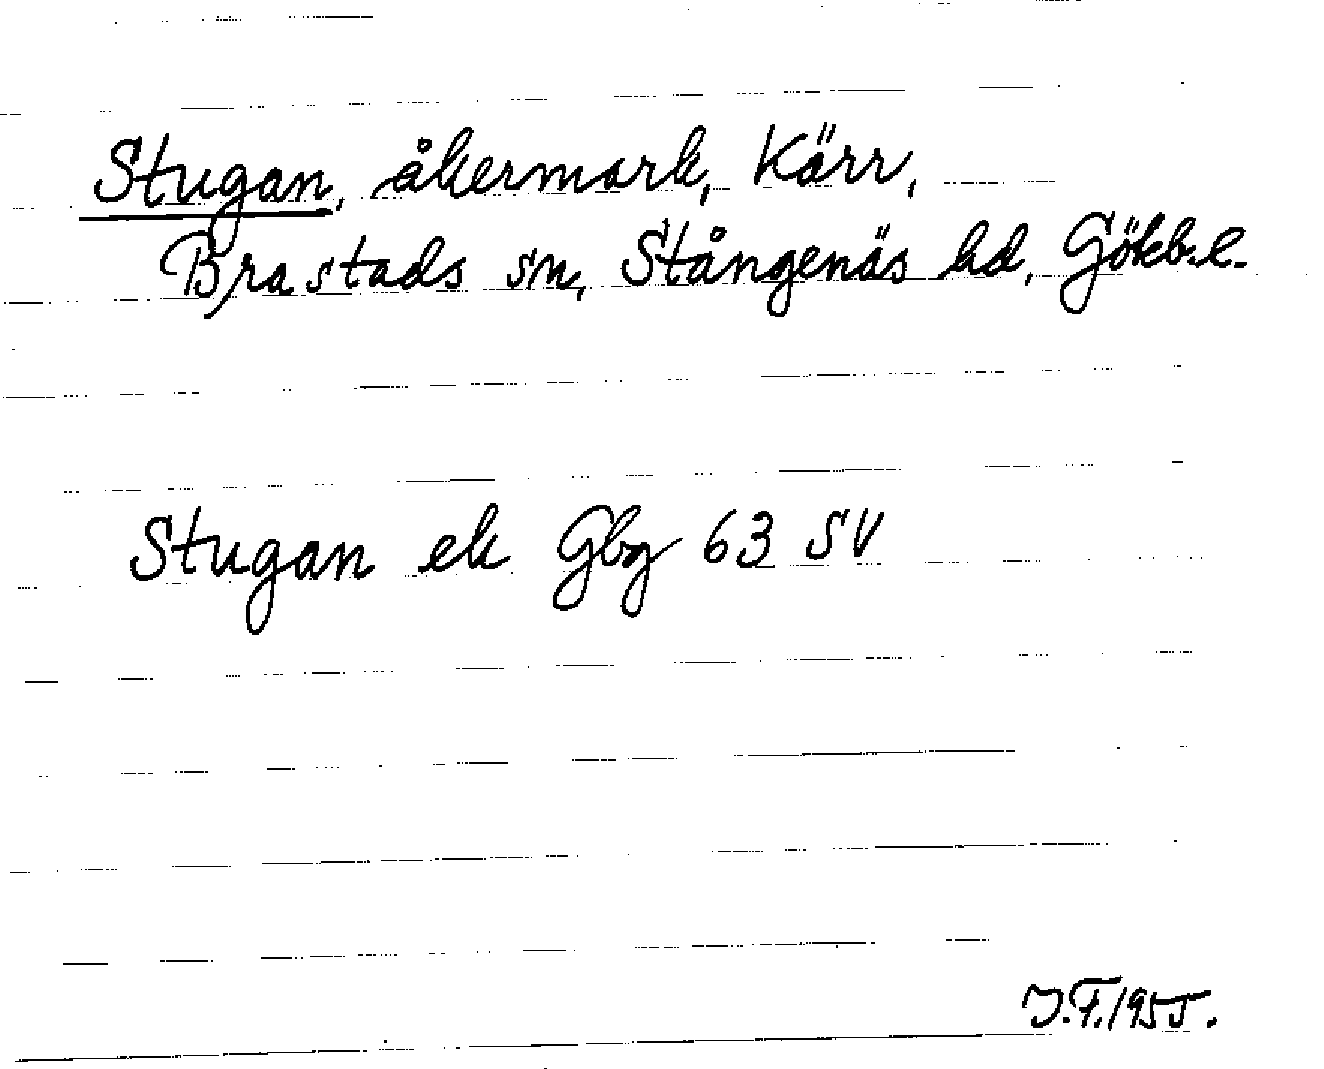 Stugan, åkermark, Kärr,
Brastads sn, Stångenäs hd, Göteb. l.
Stugan ek Gbg 63 SV
J.F. 1955.